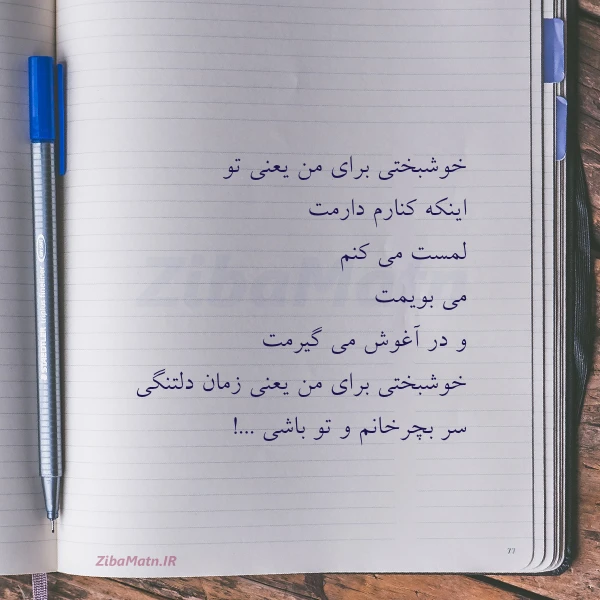 خوشبختی برای من یعنی تو
اینکه کنارم دارمت
لمست می کنم
می بویمت
و در آغوش می گیرمت
خوشبختی برای من یعنی زمان دلتنگی
سر بچرخانم و تو باشی ...!
ZibaMatn
ZibaMatn.IR